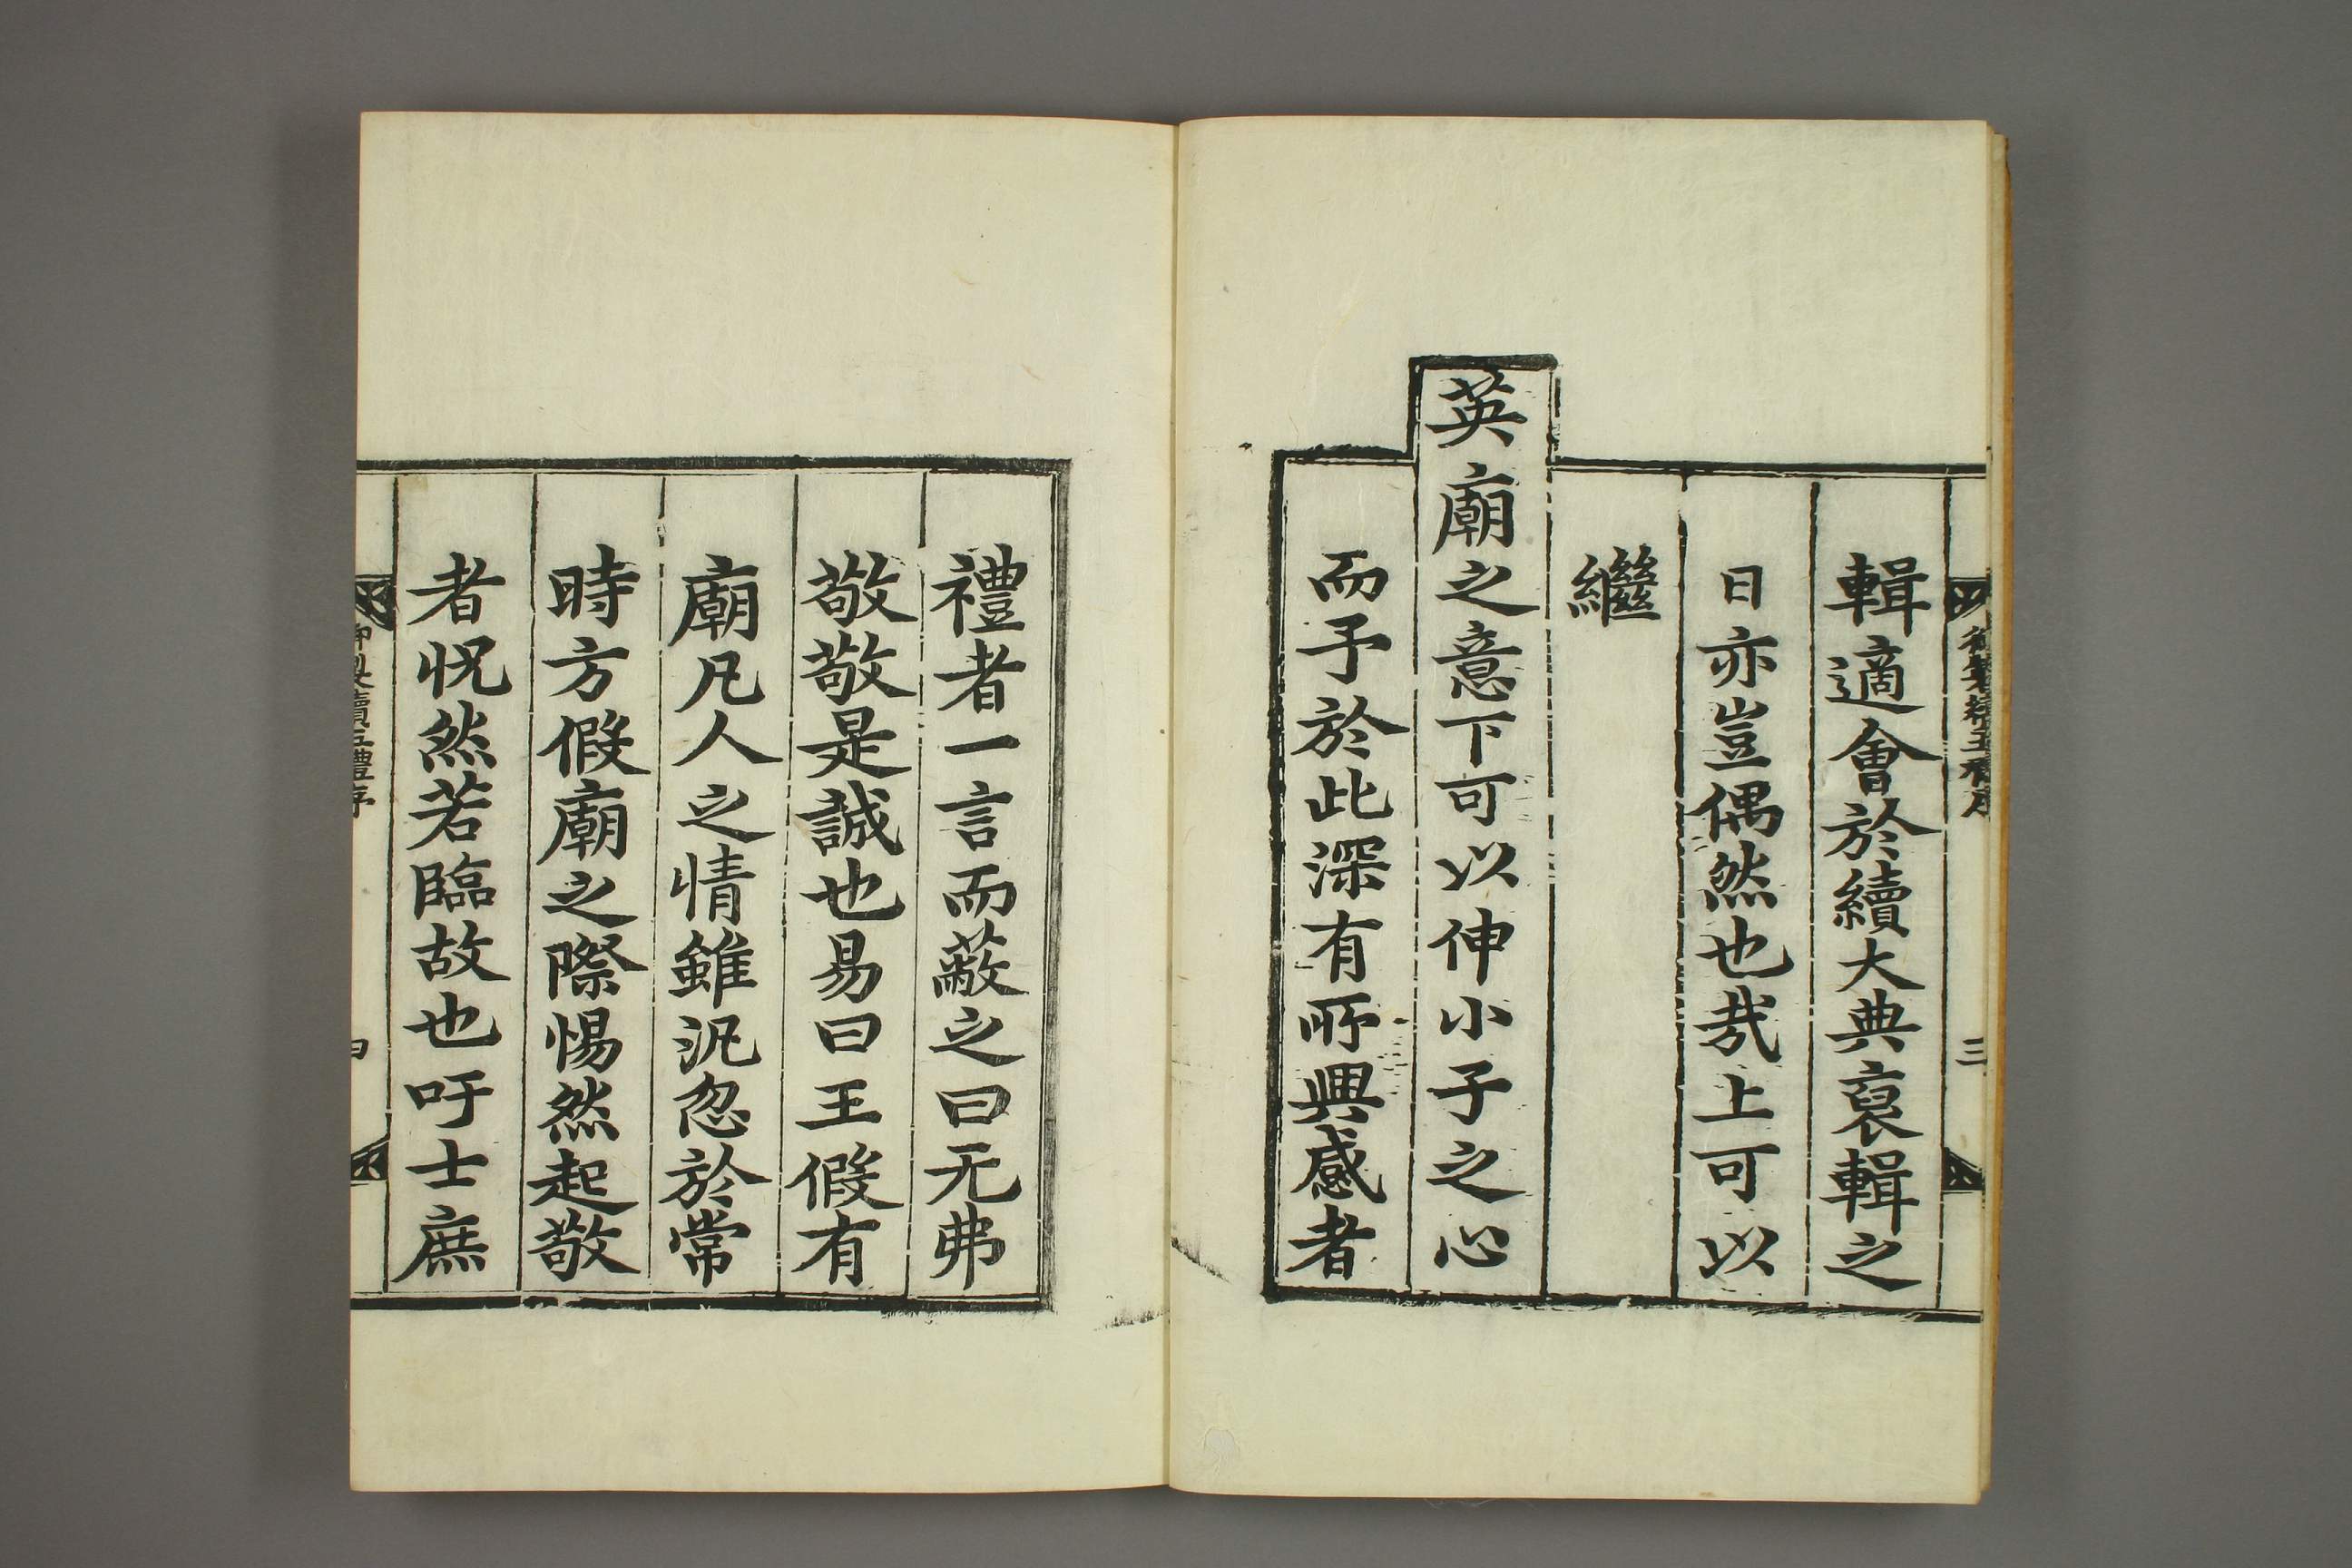 輯適會於續大典裒輯之
日亦豈偶然也㢤上可以
繼
英廟之意下可以伸小子之心
而予於此深有所興感者
三
禮者一言而蔽之曰无弗
敬敬是誠也易曰王假有
廟凡人之情雖汎忽於常
時方假廟之際惕然起敬
者怳然若臨故也吁士庶
御製續五禮序